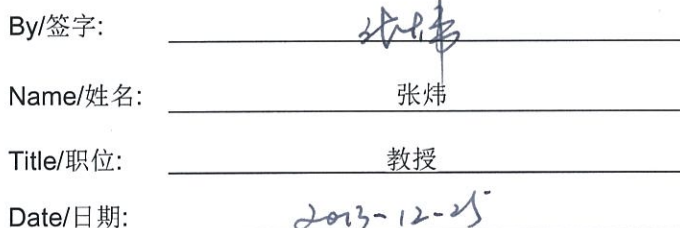 By/签字: 张炜
Name/姓名: 张炜
Title/职位: 教授
Date/日期: 2013-12-25